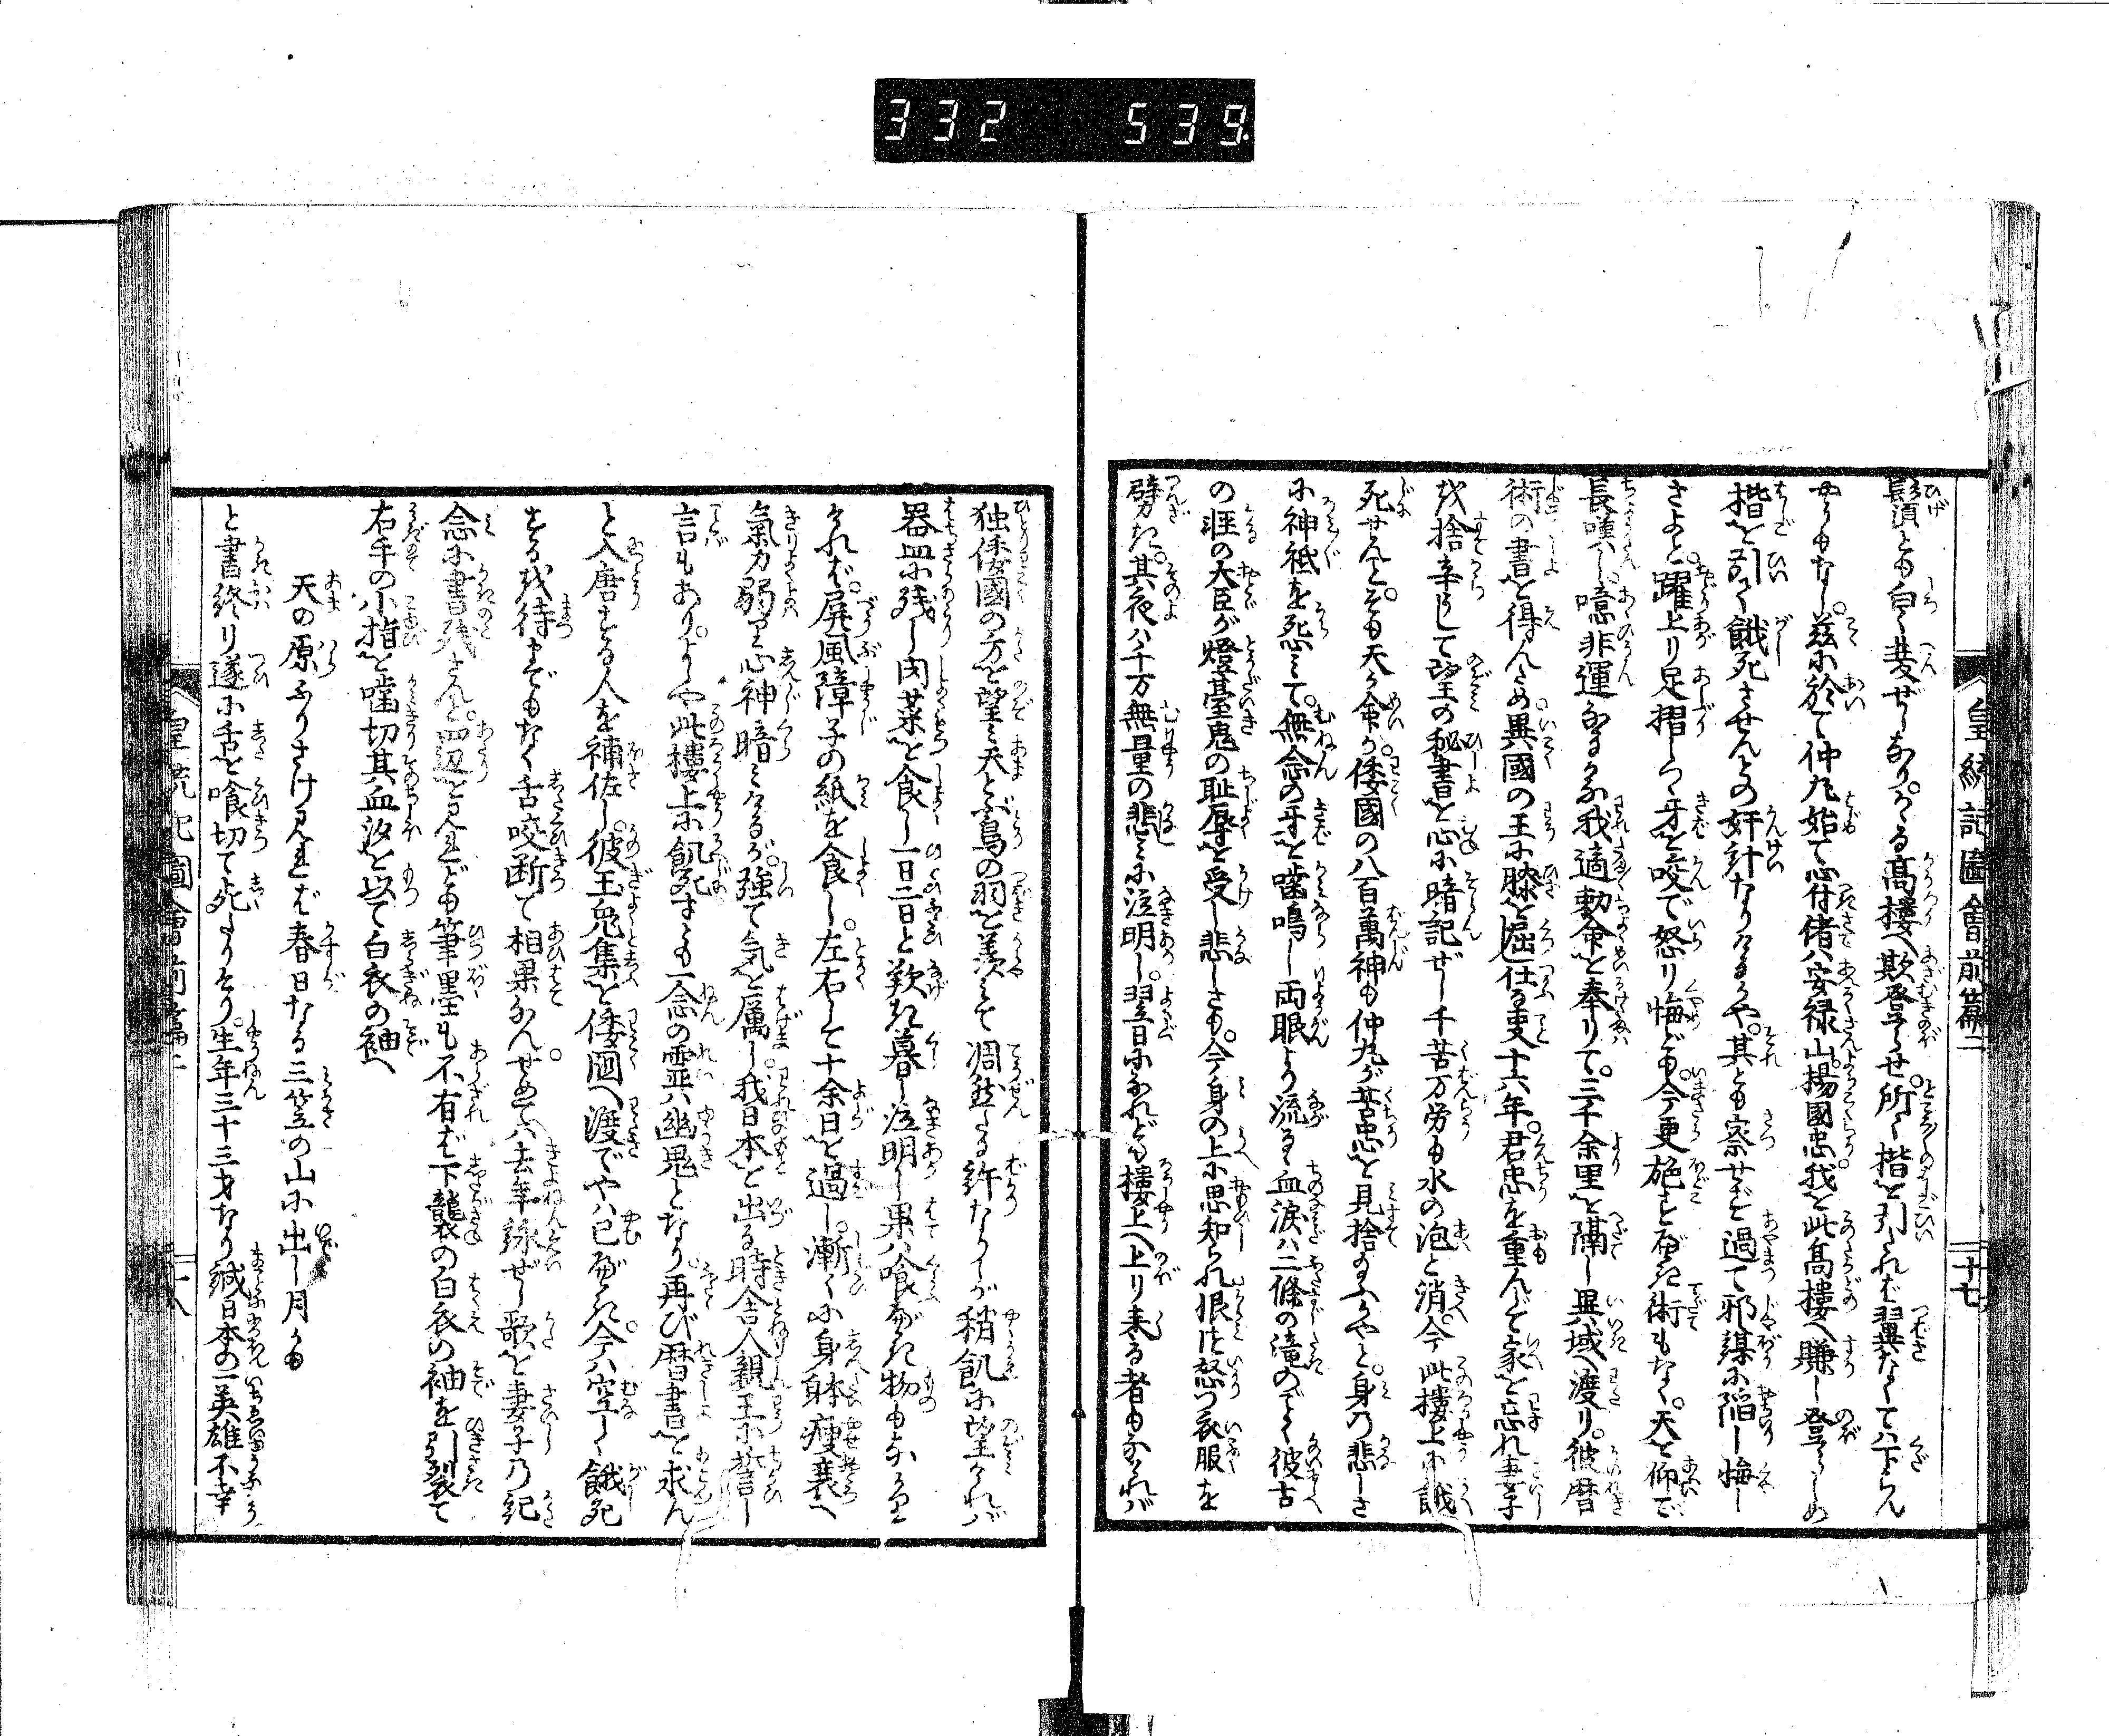 332 539.
皇統記圖會前篇二
十七
髭須とも白く變ぜしなり。かゝる高樓へ欺登らせ。所々階を引れば翼なくては下らん
やうもなし。茲に於て仲丸始て心付偖は安禄山揚國忠我を此高樓へ賺し登らしめ
階を引て餓死させんとの奸計なりけるや。其とも察せず過て邪謀に陥し悔し
さよと。躍上り足摺しつ牙を咬で怒り悔ども。今更施すべき術もなく。天を仰で
長嘆し。噫非運なるかな我適勅命を奉りて。三千余里を隔し異域へ渡り。彼暦
術の書を得んため異國の王に膝を屈仕る事十六年。君忠を重んじて家を忘れ妻子
を捨辛じて望の秘書を心に暗記ぜし千苦万労も水の泡と消。今此樓上に餓
死せんとぞも天の命か。倭國の八百萬神も仲丸が苦忠を見捨給ふかやと。身の悲しさ
に神祇を恐みて。無念の牙を噛鳴し両眼より流るゝ血涙は二條の滝のごとく彼古
の軽の大臣が燈臺鬼の恥辱を受し悲しさも。今身の上に思知られ恨つ怒つ衣服を
劈き。其夜は千万無量の悲みに泣明し。翌日になれども樓上へ上り来る者もなければ
独倭國の方を望み天とぶ鳥の羽を羨みて凋然たる許なりしが稍飢に望ければ
器皿に残し肉菜を食し一日二日と歎き暮し泣明し果は喰べき物もなかりけ
ければ。屏風障子の紙を食し。左右して十余日を過し。漸々に身躰痩衰へ
氣力弱り心神暗みけるが。強て気を属し。我日本を出る時舎人親王に誓し
言もあり。よしや此樓上に飢死すとも一念の霊は幽鬼となり再び暦書を求ん
と入唐する人を補佐し。彼玉兔集を倭國へ渡でやは已べき。今は空しく餓死
するを待までもなく舌咬断て相果なんせめては去年詠ぜし歌を妻子の紀
念に書残さんと。四辺を見れども筆墨も不有ば下襲の白衣の袖を引裂て
右手の小指を噛切其血汐を以て白衣の袖へ
天の原ふりさけ見れば春日なる三笠の山に出し月かも
と書終り遂に舌を喰切て死たりけり。生年三十三才なり誠日本の一英雄不幸
皇統記圖會前篇二
十八